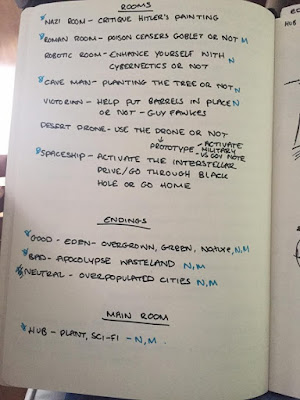 ROOMS
* NAZI ROOM - CRITIQUE HITLER'S PAINTING
* ROMAN ROOM - POISON CEASERS GOBLET OR NOT M
ROBOTIC ROOM - ENHANCE YOURSELF WITH N
CYBERNECTICS OR NOT
* CAVE MAN - PLANTING THE TREE OR NOT N
VICTORIAN - HELP PUT BARRELS IN PLACE N
OR NOT - GUY FAWKES
DESERT DRONE - USE THE DRONE OR NOT
↓
PROTOTYPE - ACTIVATE
MILITARY
- US GOV NOTE
* SPACESHIP - ACTIVATE THE INTERSTELLAR
DRIVE/GO THROUGH BLACK
HOLE OR GO HOME
ENDINGS
* GOOD - EDEN - OVERGROWN, GREEN, N,M
* BAD - APOCOLYPSE WASTELAND N,M
* NEUTRAL - OVERPOPULATED CITIES N,M
MAIN ROOM
* HUB - PLANT, SCI-FI - N,M.
HUB